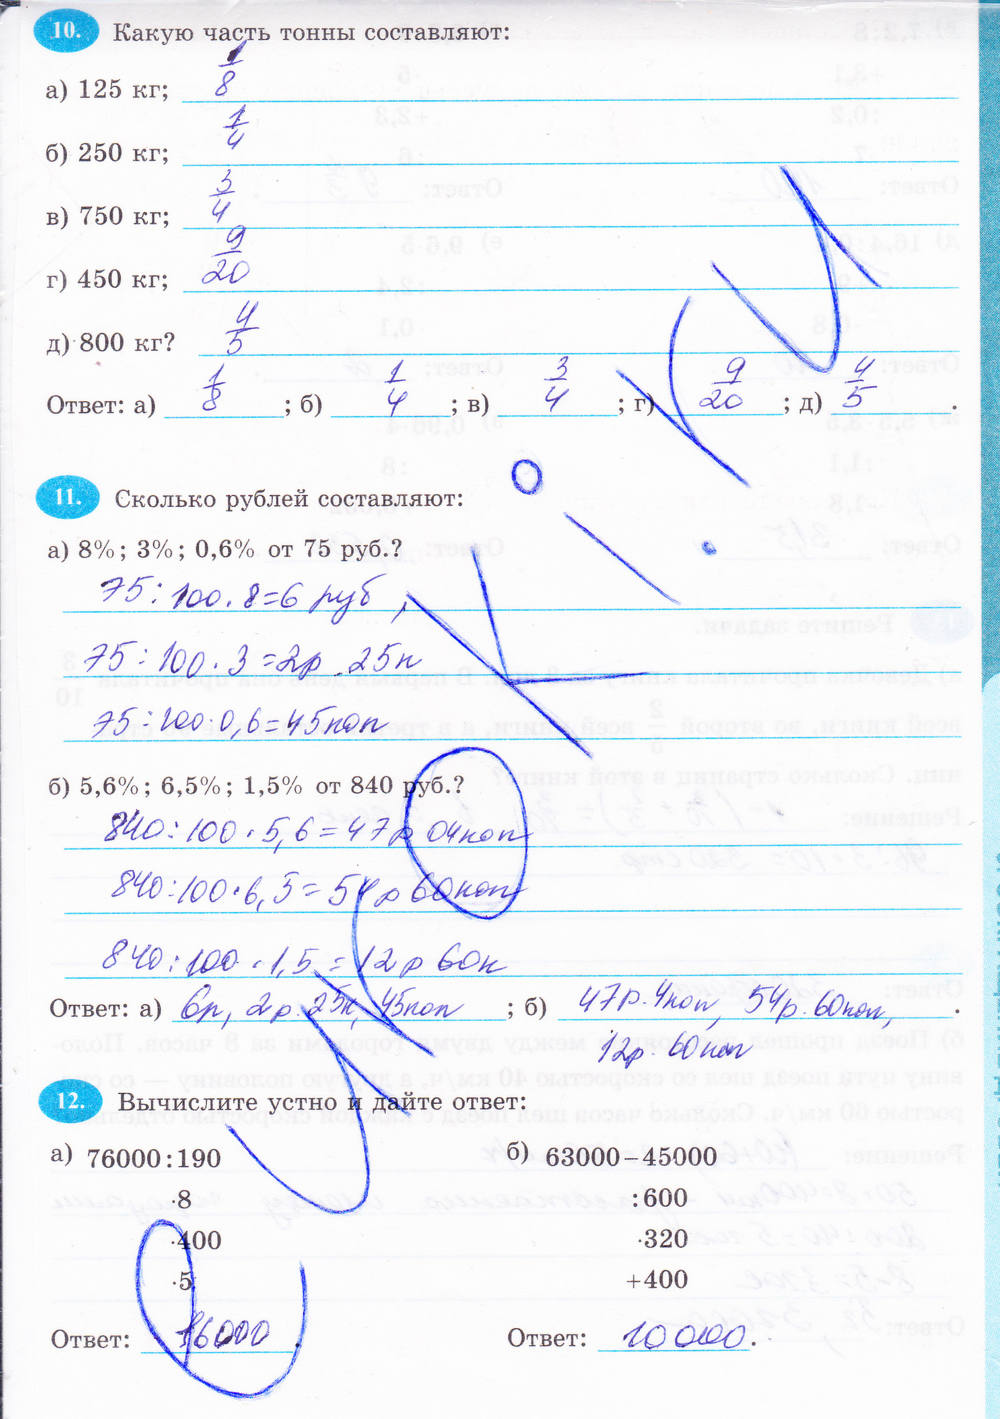 10. Какую часть тонны составляют:
а) 125 кг; 1/8
б) 250 кг; 1/4
в) 750 кг; 3/4
г) 450 кг; 9/20
д) 800 кг? 4/5
Ответ: а) 1/8; б) 1/4; в) 3/4; г) 9/20; д) 4/5.
11. Сколько рублей составляют:
а) 8%; 3%; 0,6% от 75 руб.?
75:100·8=6 руб,
75:100·3=2р 25к
75:100·0,6=45коп
б) 5,6%; 6,5%; 1,5% от 840 руб.?
840:100·5,6=47р 04коп
840:100·6,5=54р 60коп
840:100·1,5=12р 60к
Ответ: а) 6р, 2р.25к, 45коп; б) 47р.4коп, 54р.60коп,
12р.60коп
12. Вычислите устно и дайте ответ:
а) 76000:190
·8
·400
·5
Ответ: 16000.
б) 63000−45000
:600
·320
+400
Ответ: 10000.